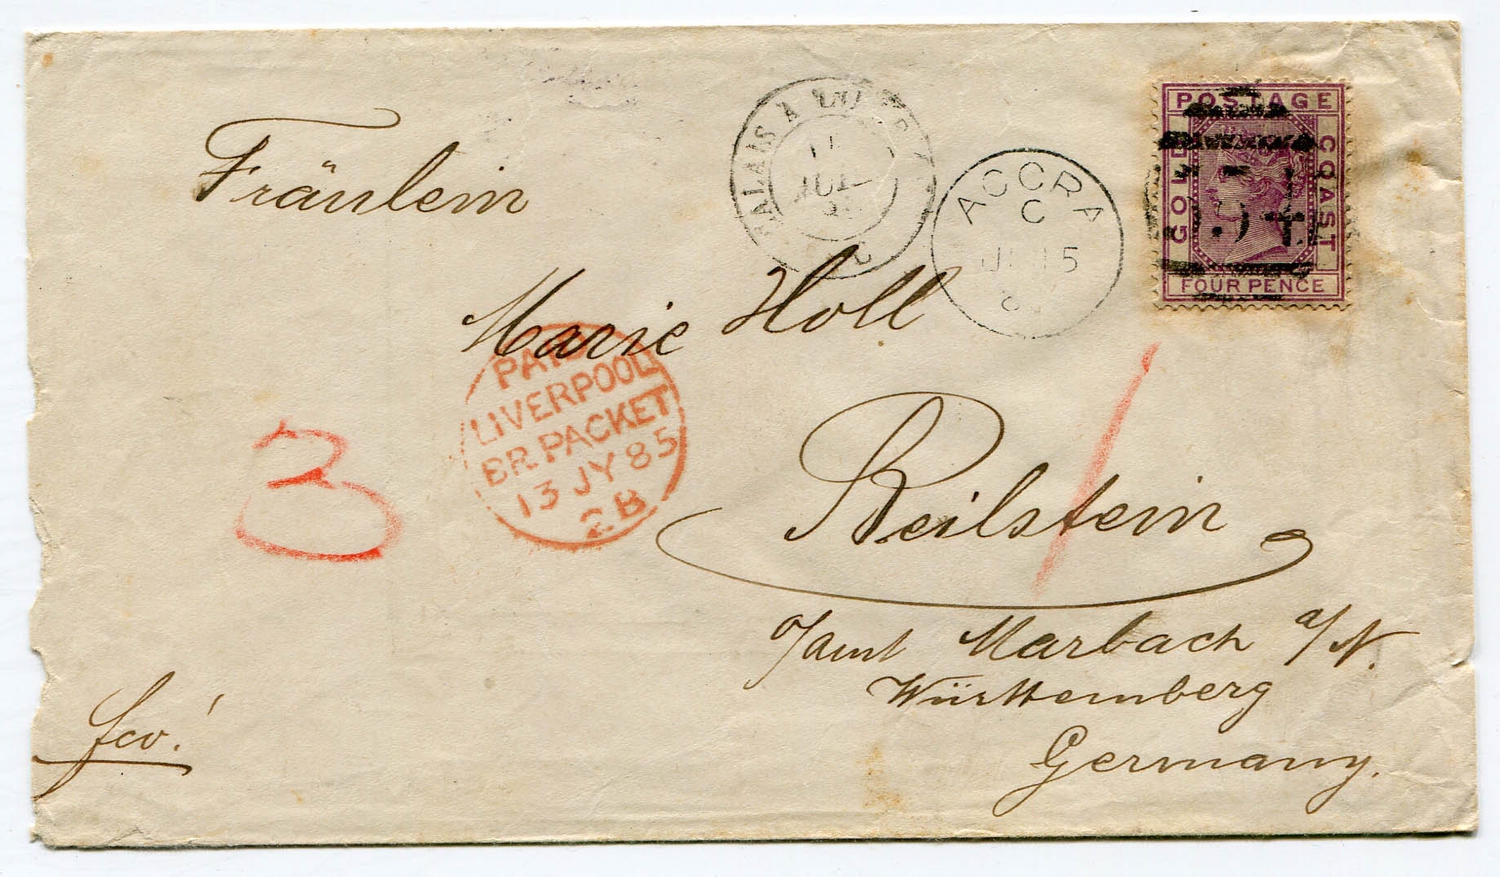 POSTAGE
GOLD COAST
FOUR PENCE
554
CALAIS A
JUIL
ACCRA
C
15
Fräulein
Marie Holl
PAID
LIVERPOOL
BR. PACKET
13 JY 85
2B
3
1
Beilstein
O/amt Marbach a/N.
Württemberg
Germany.
fco!